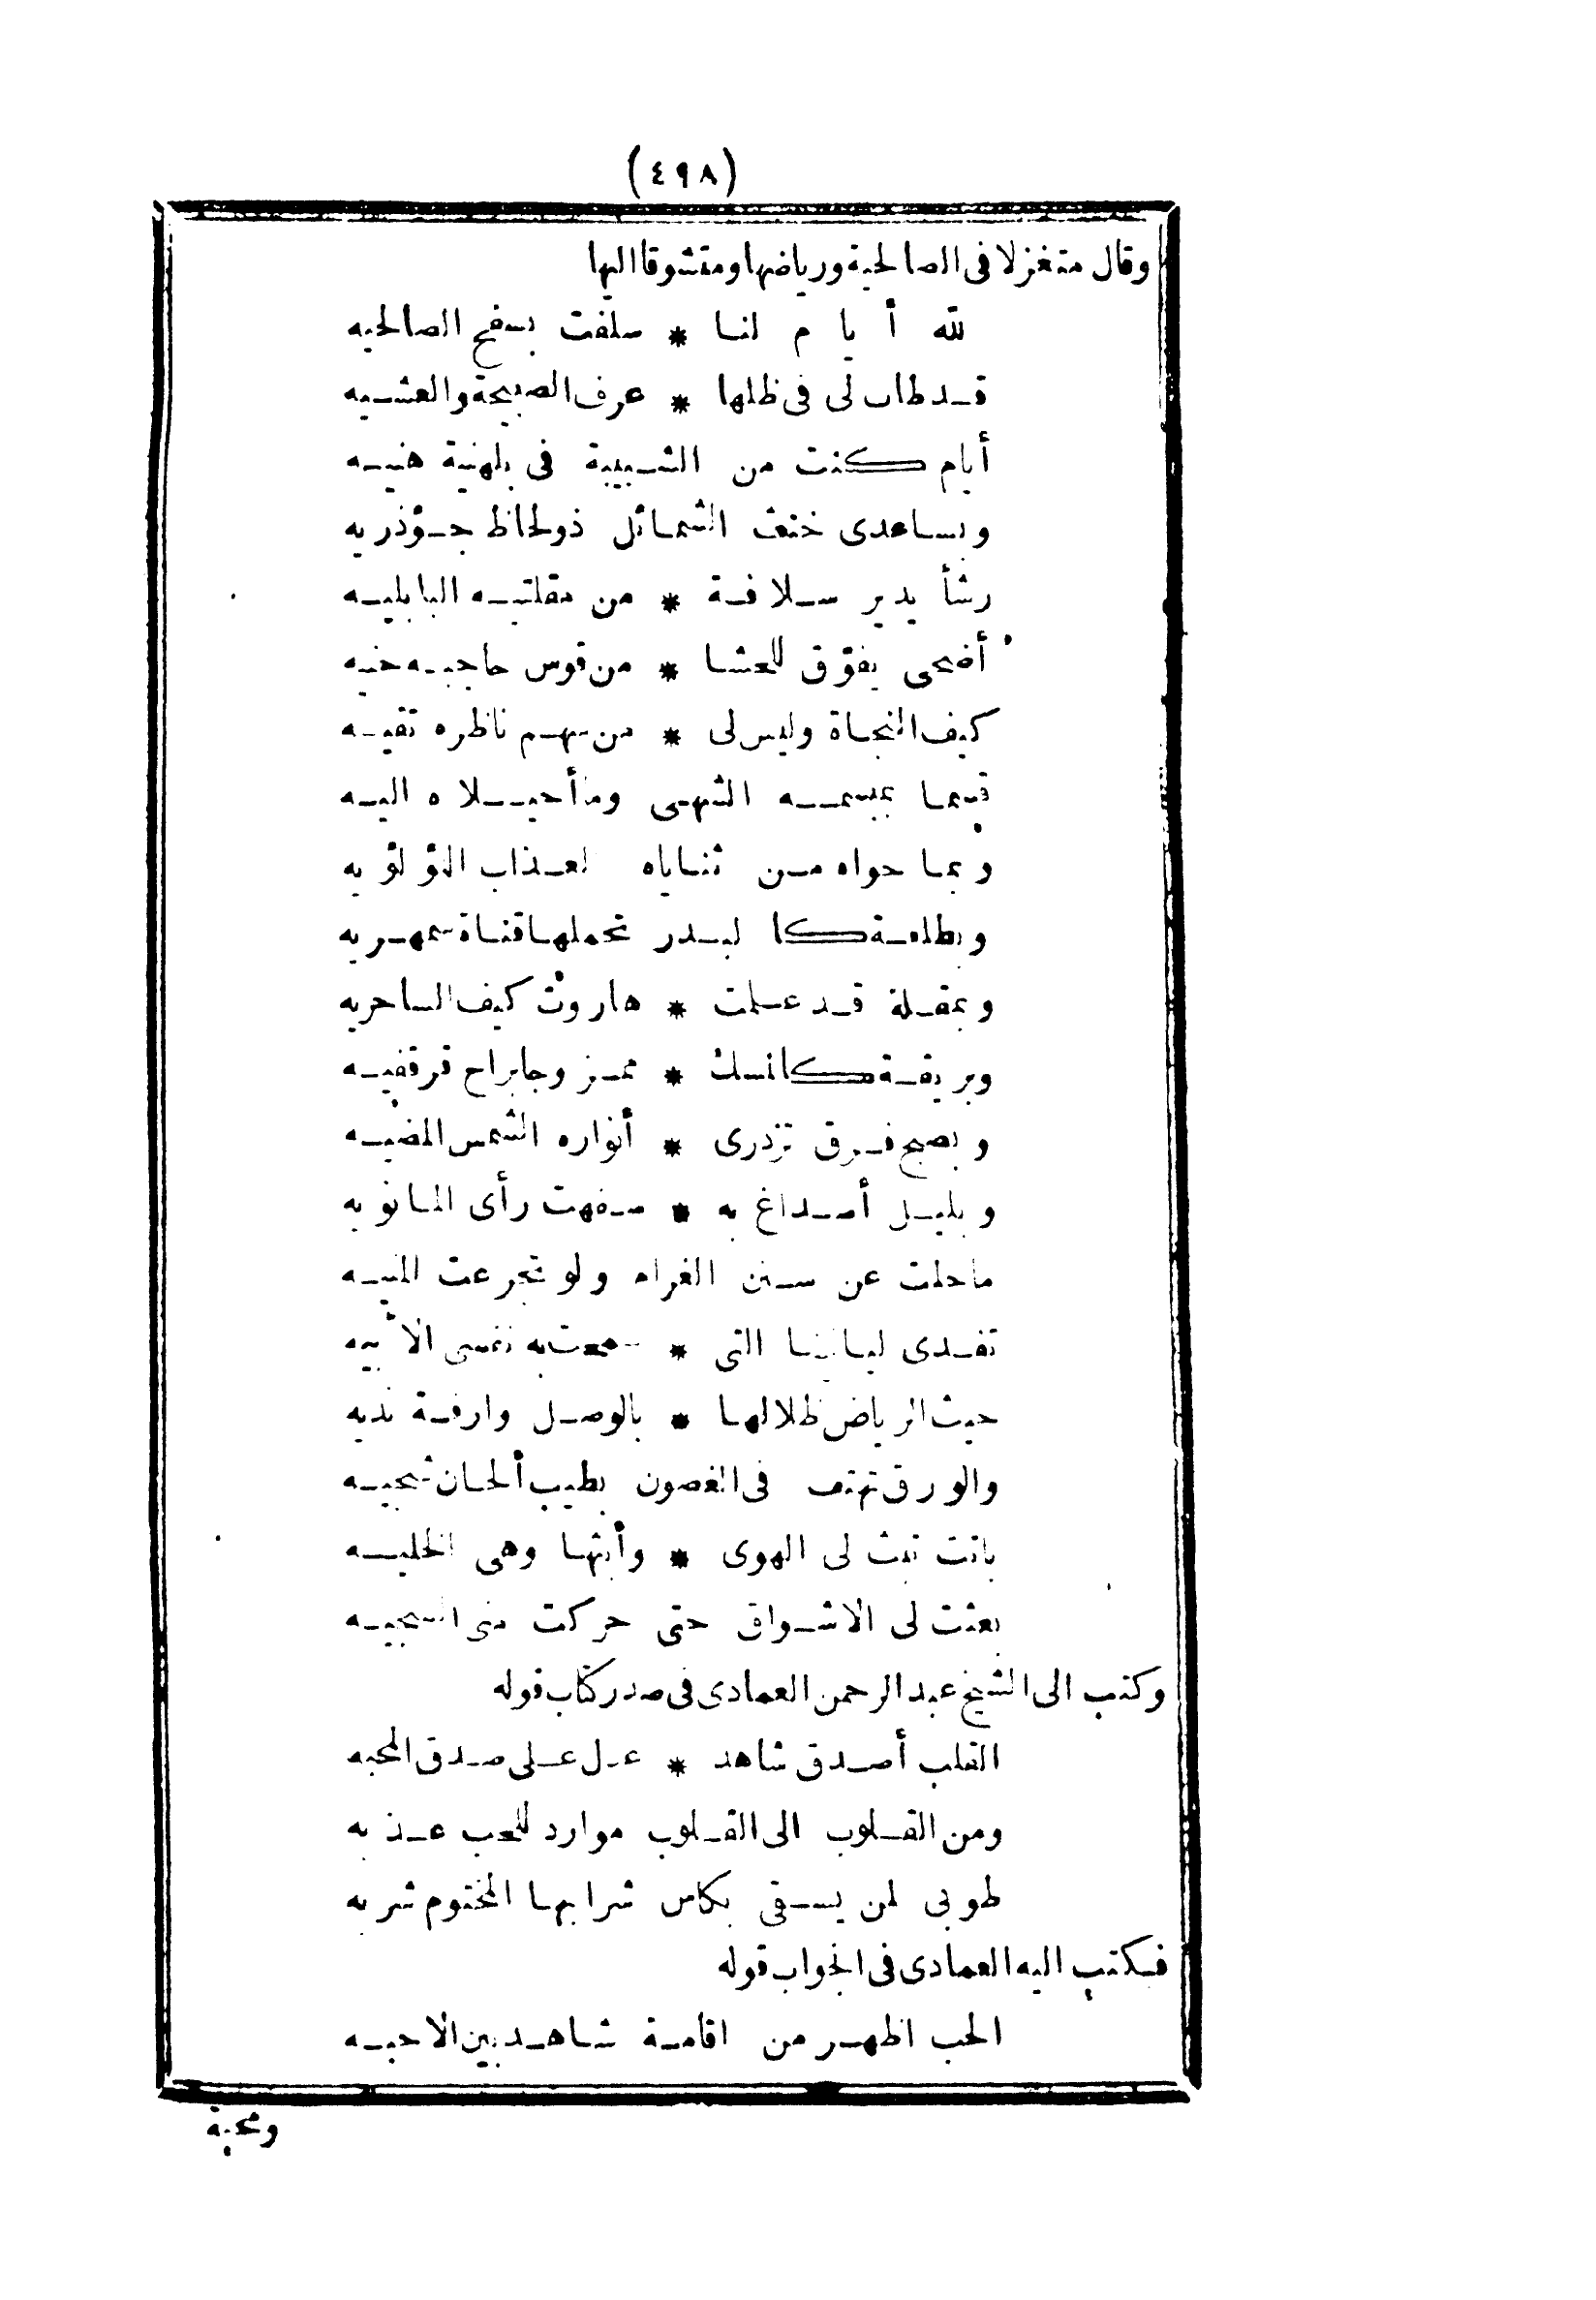 (٤٩٨)
وقال متغزلا فى الصالحية ورياضها ومتشوقا اليها
لله أيام لنا * سلفت بسفح الصالحيه
قد طاب لى فى ظلها * عرف الصبيحة والعشيه
أيام كنت من الشبيبة فى بلهنية هنيه
وبساعدى خنث الشمائل ذو لحاظ جؤذريه
رشأ يدير سلافة * من مقلتيه البابليه
أضحى يفوّق للحشا * من قوس حاجبه حنيه
كيف النجاة وليس لى * من سهم ناظره تقيه
قسما بمبسمه الشهى وما أحيلاه اليه
وبما حواه من ثناياه العذاب اللؤلؤيه
وبطلعة كالبدر تحملها قناة سمهريه
وبمقلة قد علمت * هاروت كيف الساحريه
وبريقة كالمسك * ممزوجا براح قرقفيه
وبصبح فرق تزدرى * أنواره الشمس المضيه
وبليل أصداغ به * سفهت رأى المانويه
ماحلت عن سنن الغرام ولو تجرعت المنيه
تفدى ليالينا التى * سمحت به نفسى الأبيه
حيث الرياض ظلالها * بالوصل وارفة نديه
والورق تهتف فى الغصون بطيب ألحان شجيه
باتت تبث لى الهوى * وأبثها وهى الخليه
بعثت لى الاشواق حتى حركت منى السجيه
وكتب الى الشيخ عبد الرحمن العمادى فى صدر كتاب قوله
القلب أصدق شاهد * عدل على صدق المحبه
ومن القلوب الى القلوب موارد للحب عذبه
طوبى لمن يسقى بكاس شرابها المختوم شربه
فكتب اليه العمادى فى الجواب قوله
الحب اظهر من اقامة شاهد بين الاحبه
ومحبة